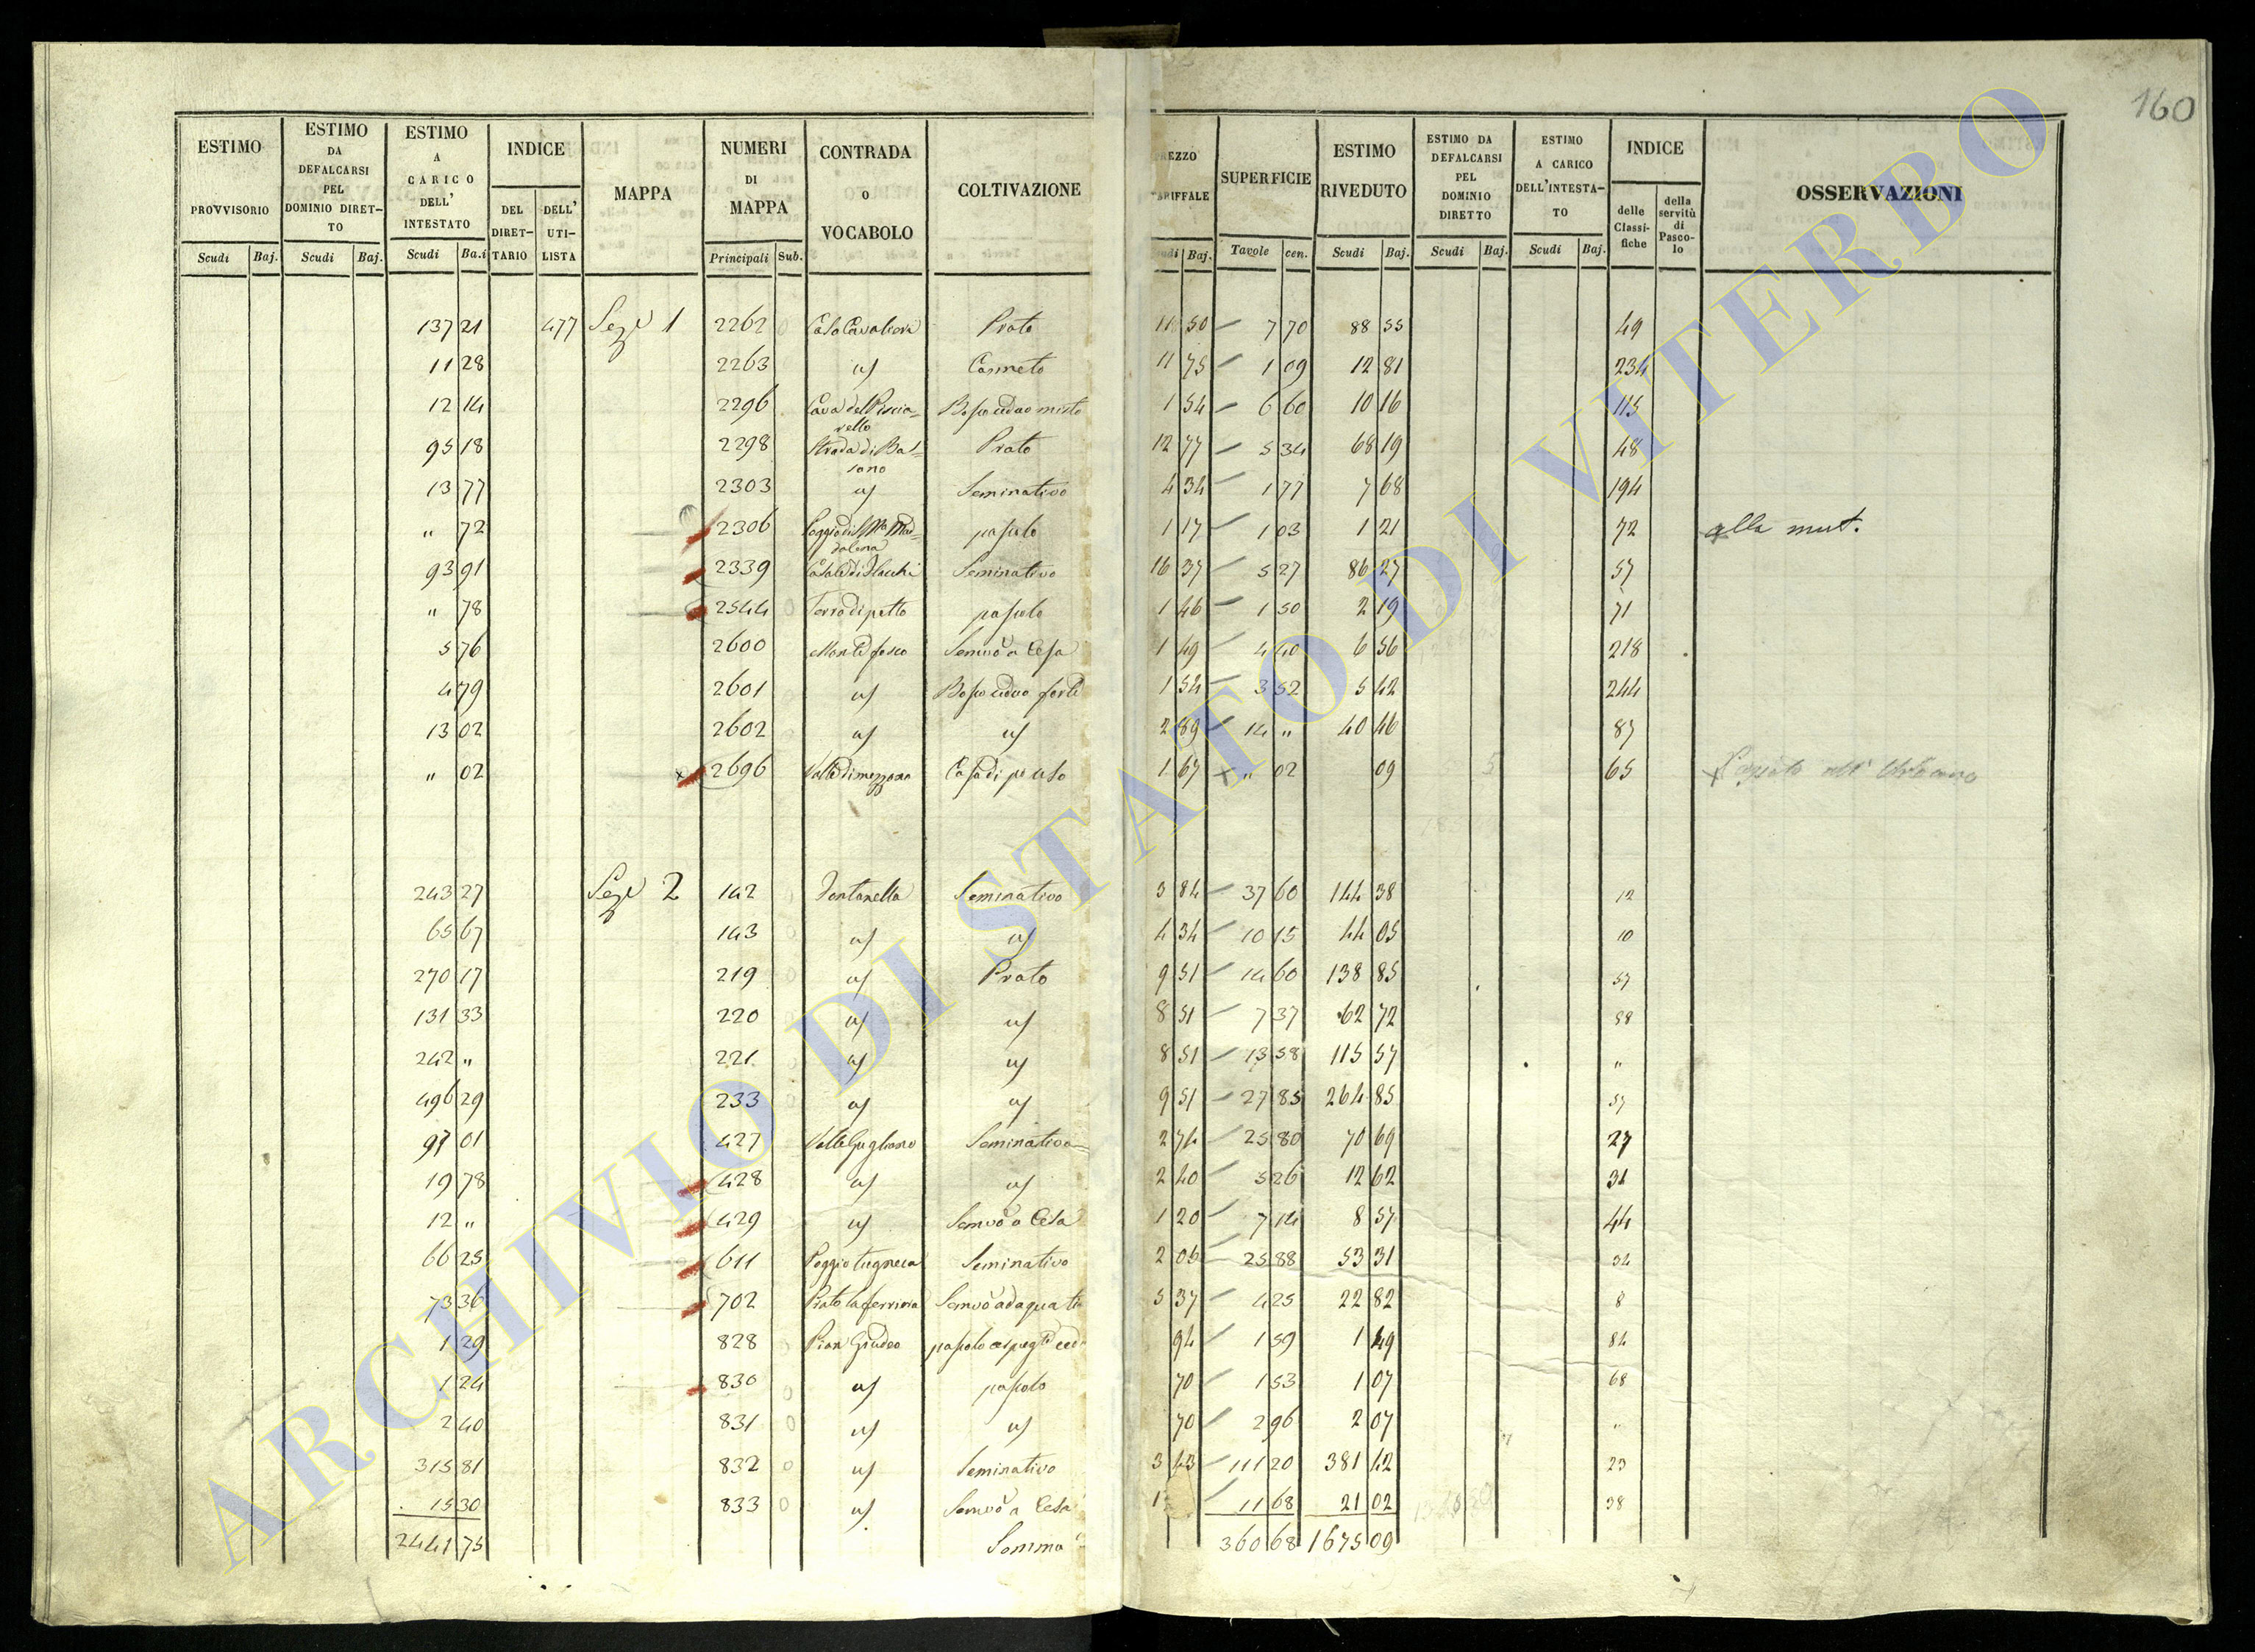 160
ESTIMO PROVVISORIO | ESTIMO DA DEFALCARSI PEL DOMINIO DIRET-TO | ESTIMO A CARICO DELL' INTESTATO | INDICE | MAPPA | NUMERI DI MAPPA | CONTRADA O VOCABOLO | COLTIVAZIONE | REZZO ARIFFALE | SUPERFICIE | ESTIMO RIVEDUTO | ESTIMO DA DEFALCARSI PEL DOMINIO DIRETTO | ESTIMO A CARICO DELL'INTESTA-TO | INDICE | OSSERVAZIONI
DEL DIRET-TARIO | DELL' UTI-LISTA | delle Classi-fiche | della servitù di Pasco-lo
Scudi | Baj. | Scudi | Baj. | Scudi | Ba.i | Principali | Sub. | udi | Baj. | Tavole | cen. | Scudi | Baj. | Scudi | Baj. | Scudi | Baj.
137 21 477 Seze 1 2262 Casa Cavaliera Prato 11 50 7 70 88 55 49
11 28 2263 Canneto 11 75 1 09 12 81 234
12 14 2296 Cava del Piscia-rello Bosco ceduo misto 1 54 6 60 10 16 115
95 18 2298 Strada di Bas-sano Prato 12 77 5 34 68 19 48
13 77 2303 Seminativo 4 34 1 77 7 68 194
" 72 2306 Poggio di S. Ma Mad-dalena pascolo 1 17 1 03 1 21 72 alla mut.
93 91 2339 Seminativo 16 37 5 27 86 27 57
" 78 2544 Terra di petto pascolo 1 46 1 50 2 19 71
5 76 2600 Monte fosco Semvo a Cesa 1 49 4 40 6 56 218
4 79 2601 Bosco ceduo forte 1 54 3 52 5 42 244
13 02 2602 2 89 14 " 40 46 87
" 02 2696 Valle di mezzana Casa di po uso 1 67 " 02 09 65
243 27 Seze 2 142 Fontanella Seminativo 3 84 37 60 144 38 12
65 67 143 4 34 10 15 44 05 10
270 17 219 Prato 9 51 14 60 138 85 57
131 33 220 8 51 7 37 62 72 58
242 " 221 8 51 13 58 115 57 "
496 29 233 9 51 27 85 264 85 57
97 01 427 Valle Gugliano Seminativo 2 74 25 80 70 69 27
19 78 428 2 40 5 26 12 62 31
12 " 429 Semvo a Cesa 1 20 7 14 8 57 44
66 25 611 Seminativo 2 06 25 88 53 31 34
73 36 702 Prato la ferriera Semvo adaquato 5 37 4 25 22 82 8
1 29 828 Pian Giudeo 94 1 59 1 49 84
1 24 830 pascolo 70 1 53 1 07 68
2 40 831 70 2 96 2 07 "
315 81 832 Seminativo 3 43 111 20 381 42 23
15 30 833 Semvo a Cesa 1 11 68 21 02 38
2441 75 Somma 360 68 1675 09
ARCHIVIO DI STATO DI VITERBO